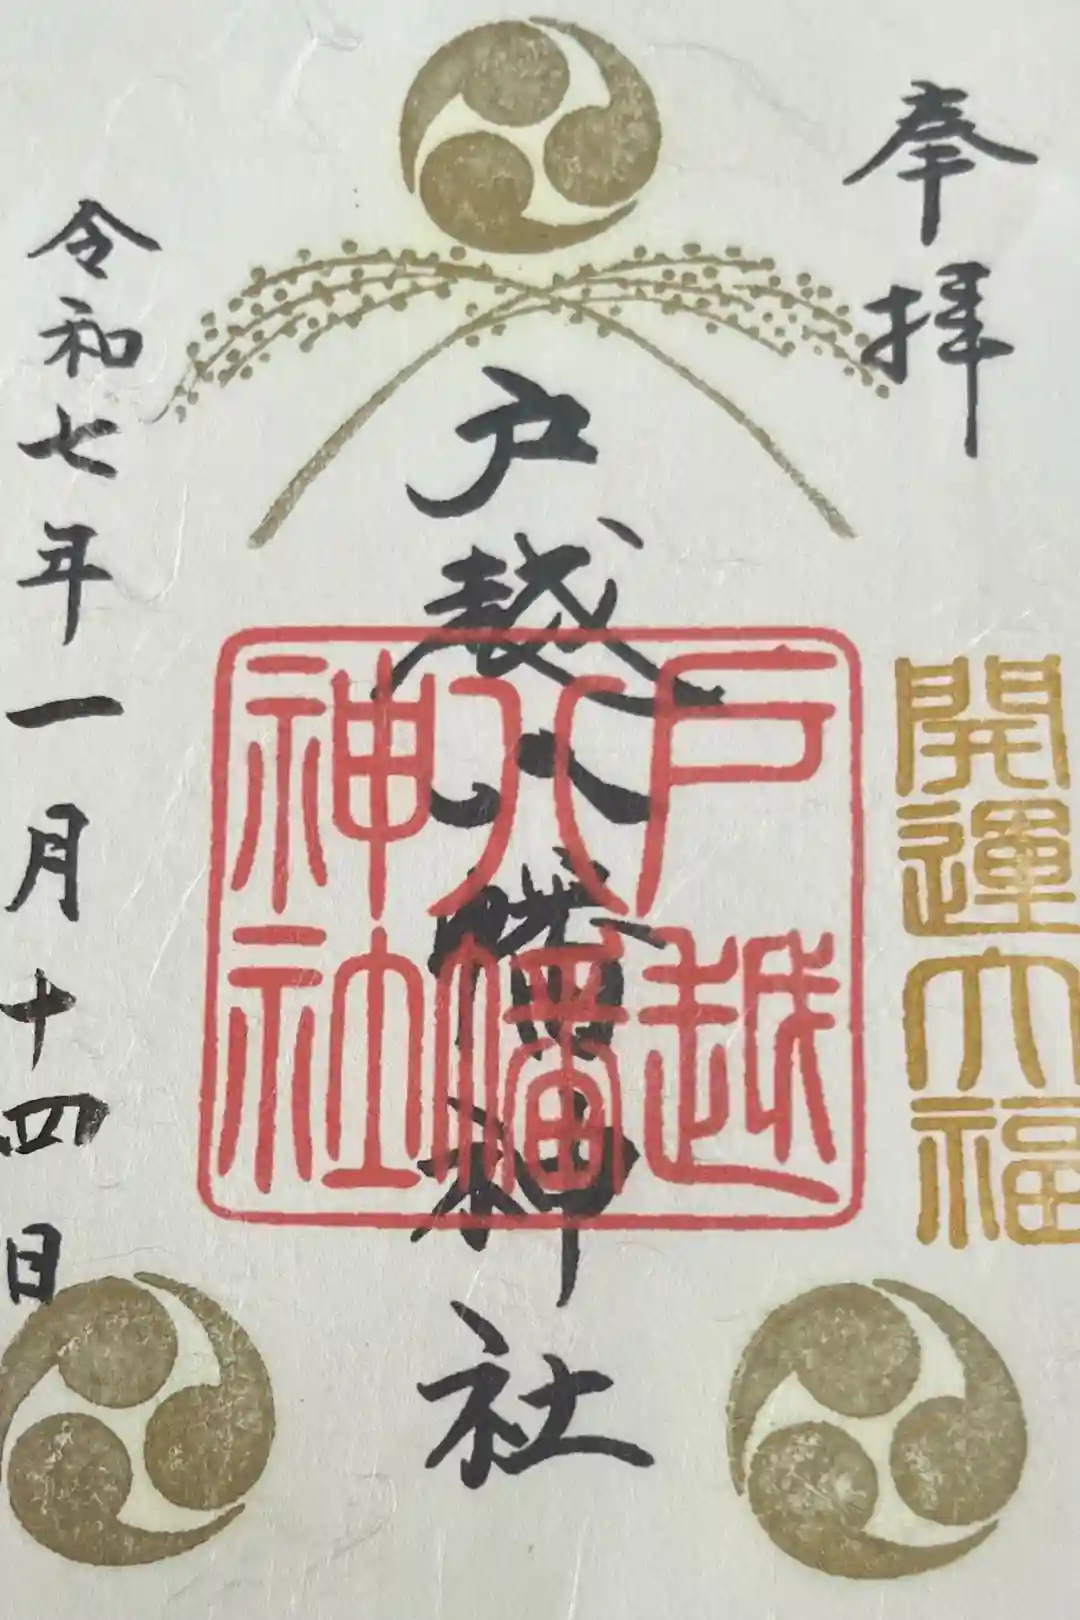 奉拝
開運大福
戸越八幡神社
戸越
八幡
神社
令和七年一月十四日